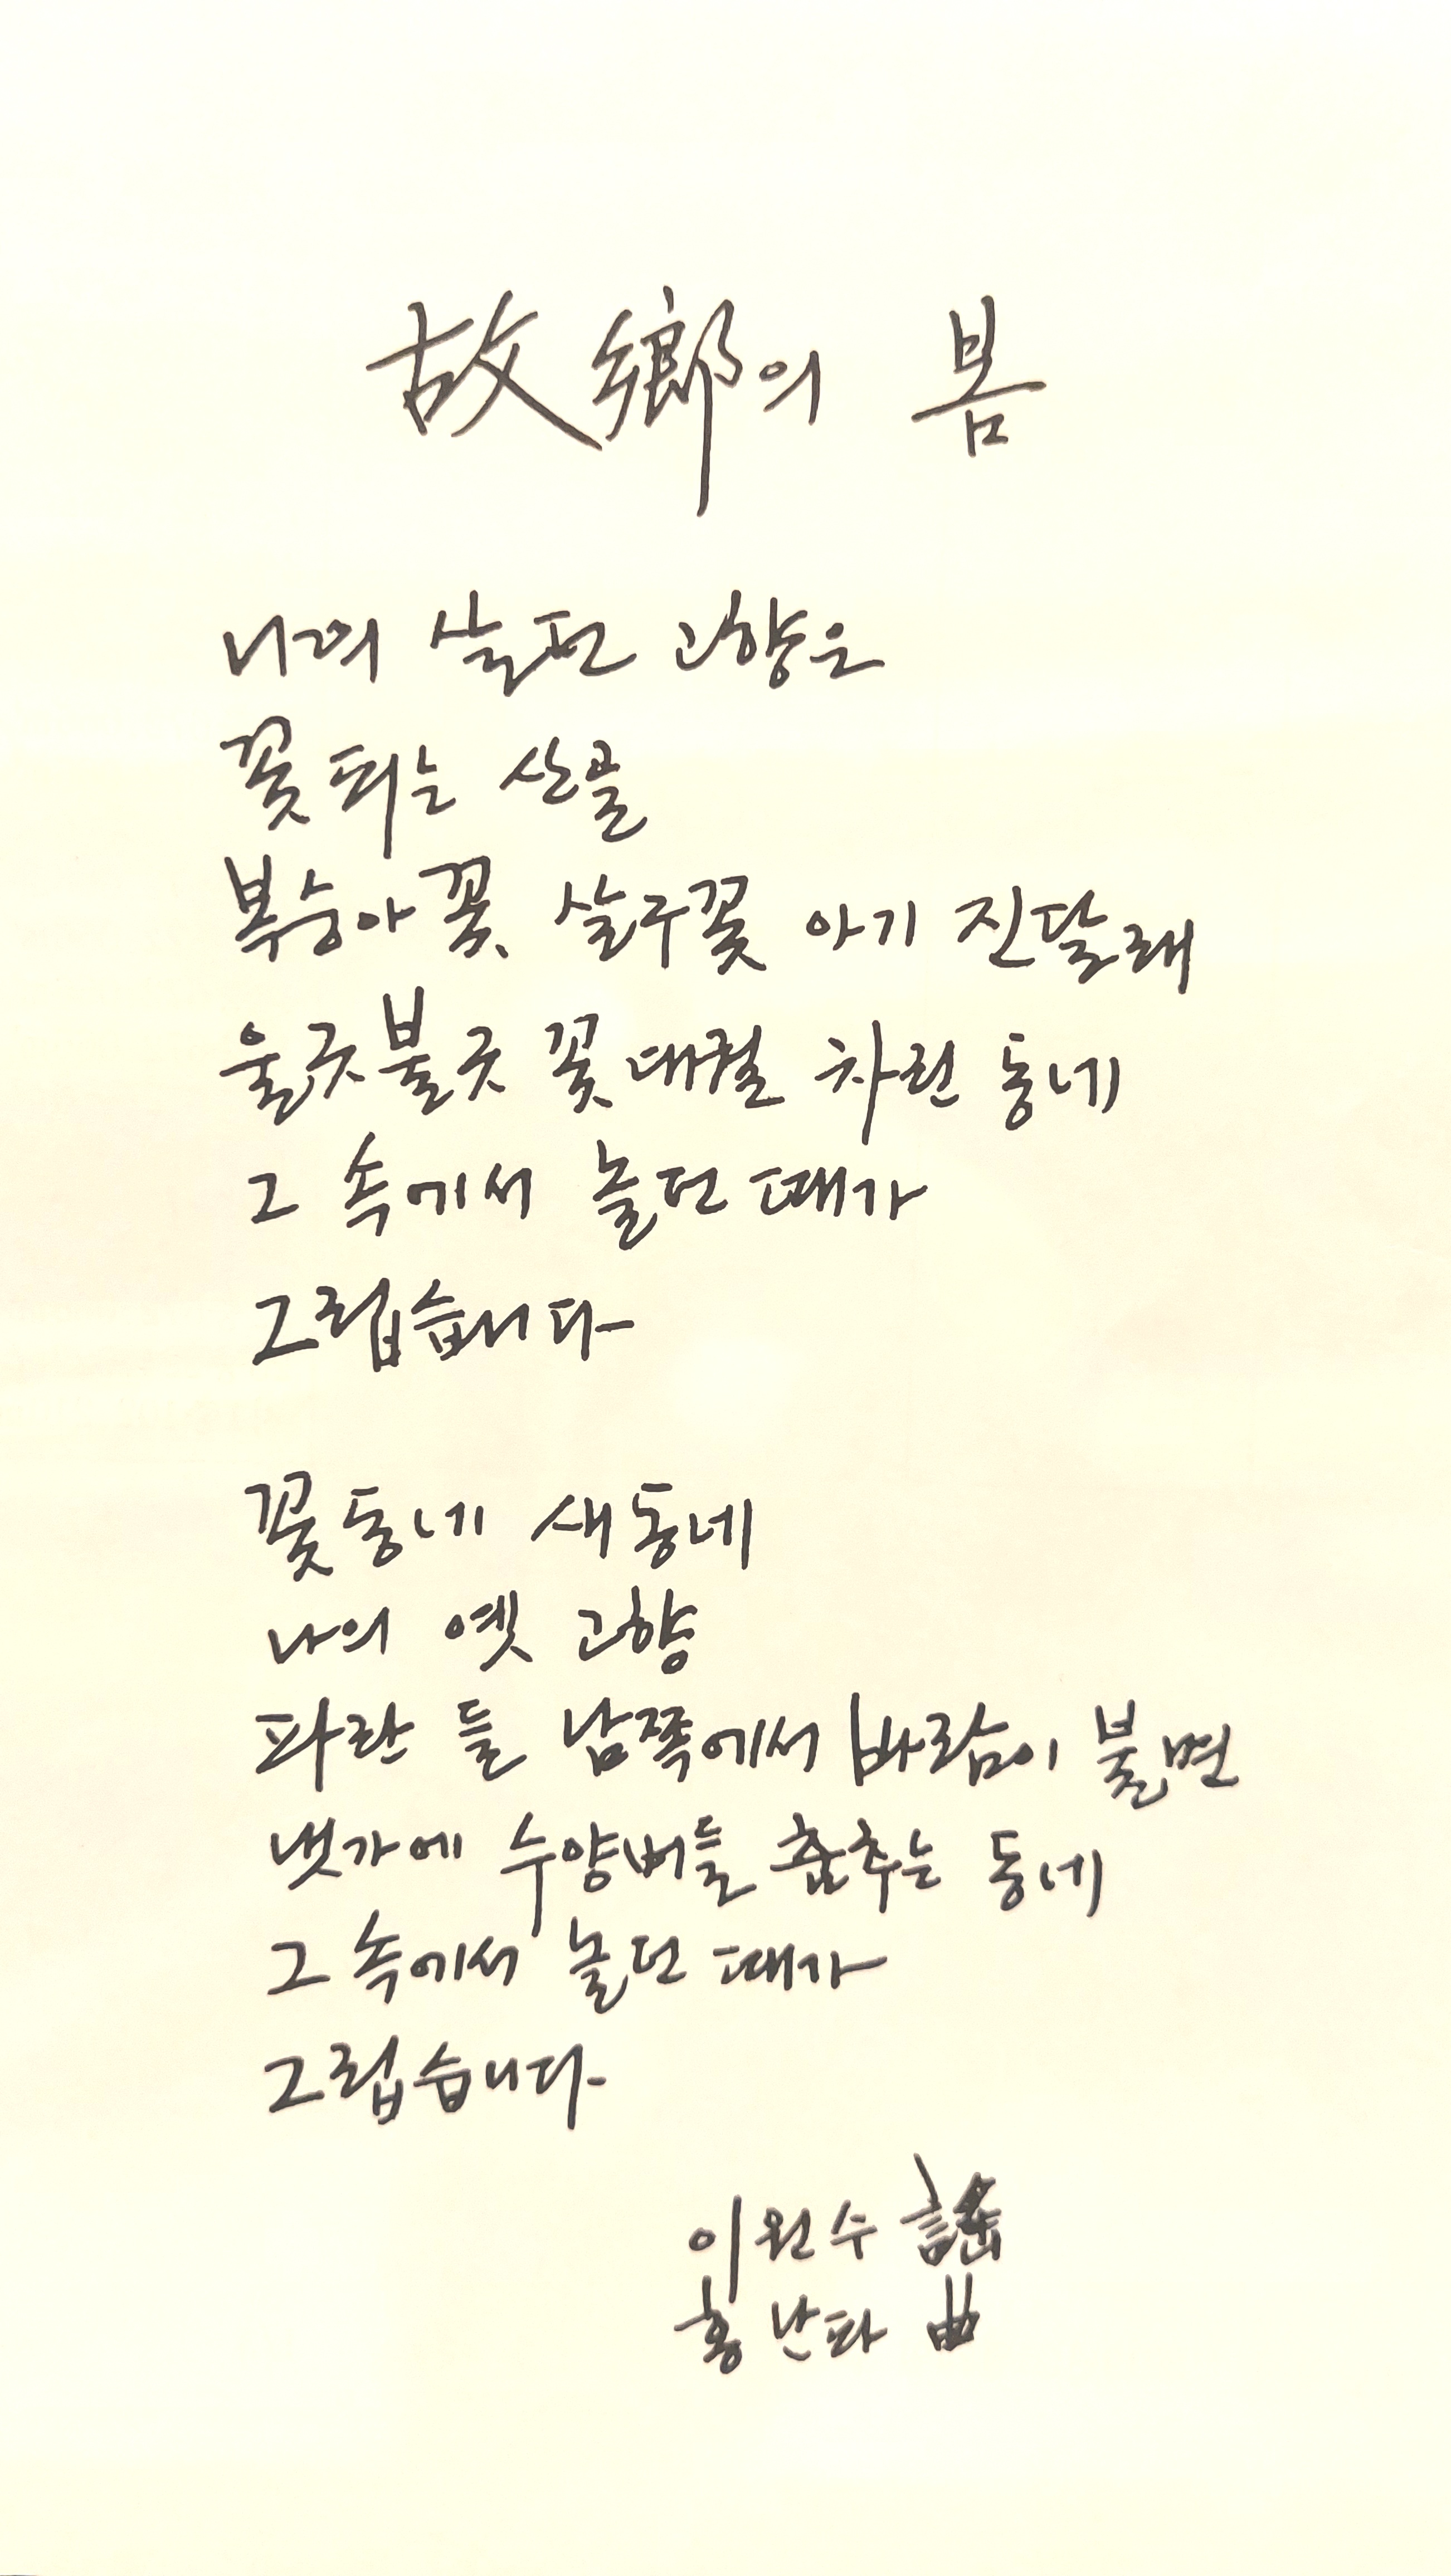 故鄕의 봄
나의 살던 고향은
꽃피는 산골
복숭아꽃 살구꽃 아기 진달래
울긋불긋 꽃대궐 차린 동네
그 속에서 놀던 때가
그립습니다
꽃동네 새동네
나의 옛 고향
파란 들 남쪽에서 바람이 불면
냇가에 수양버들 춤추는 동네
그 속에서 놀던 때가
그립습니다
이원수 謠
홍난파 曲